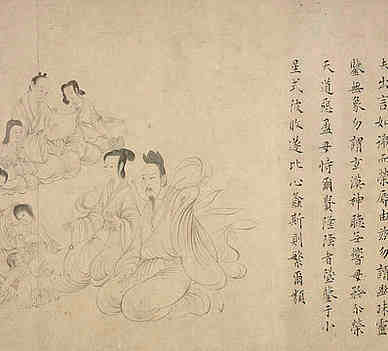 夫出言如微而榮辱由茲勿謂幽昧靈
鑒無象勿謂玄漠神聽無響毋矜尒榮
天道惡盈毋恃爾貴隆隆者墜鑒于小
星式彼攸遂比心螽斯則繁爾類